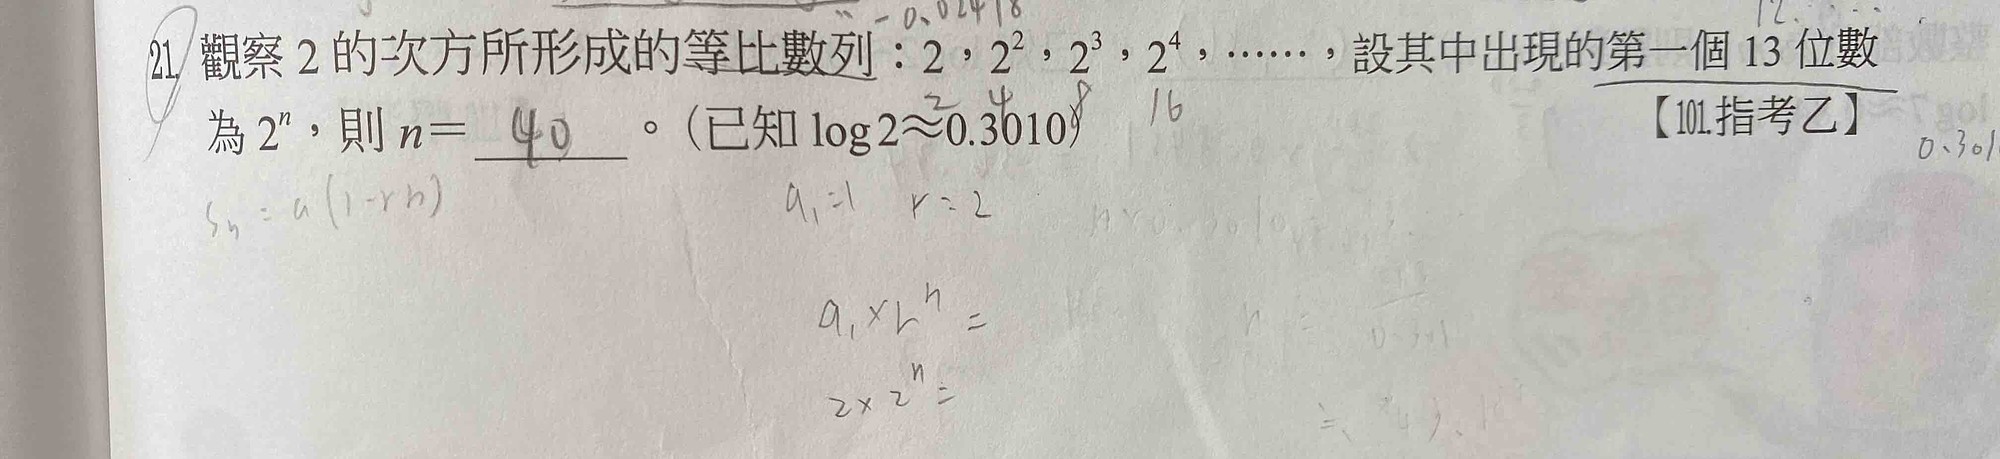 -0.02418
12.....
21 觀察 2 的次方所形成的等比數列：2，2²，2³，2⁴，……，設其中出現的第一個 13 位數
2 4 8 16
為 2ⁿ，則 n＝ 40 。（已知 log2≈0.3010） 【101.指考乙】
0.301
Sn = a(1-rn) a₁=1 r=2
a₁×rⁿ =
2×2ⁿ=